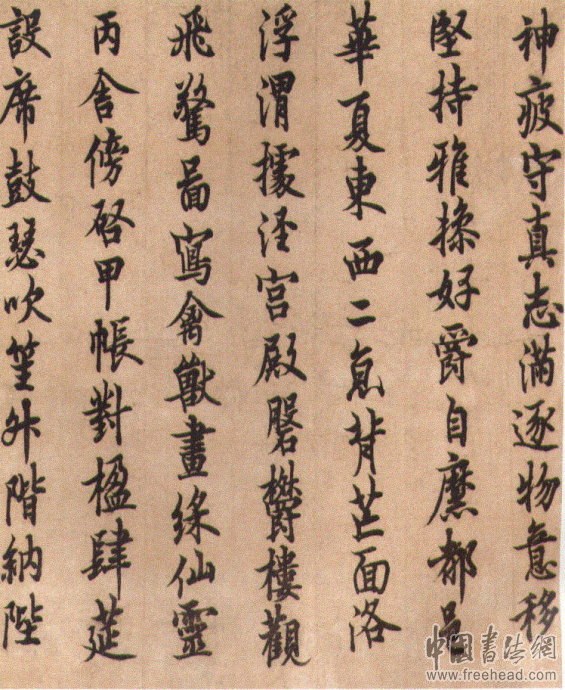 神疲守真志滿逐物意移
堅持雅操好爵自縻都邑
華夏東西二京背芒面洛
浮渭據涇宮殿磐欝樓觀
飛驚啚寫禽獸畫綵仙靈
丙舍傍啓甲帳對楹肆筵
設席鼓瑟吹笙外階納陛
中国书法網
www.freehead.com